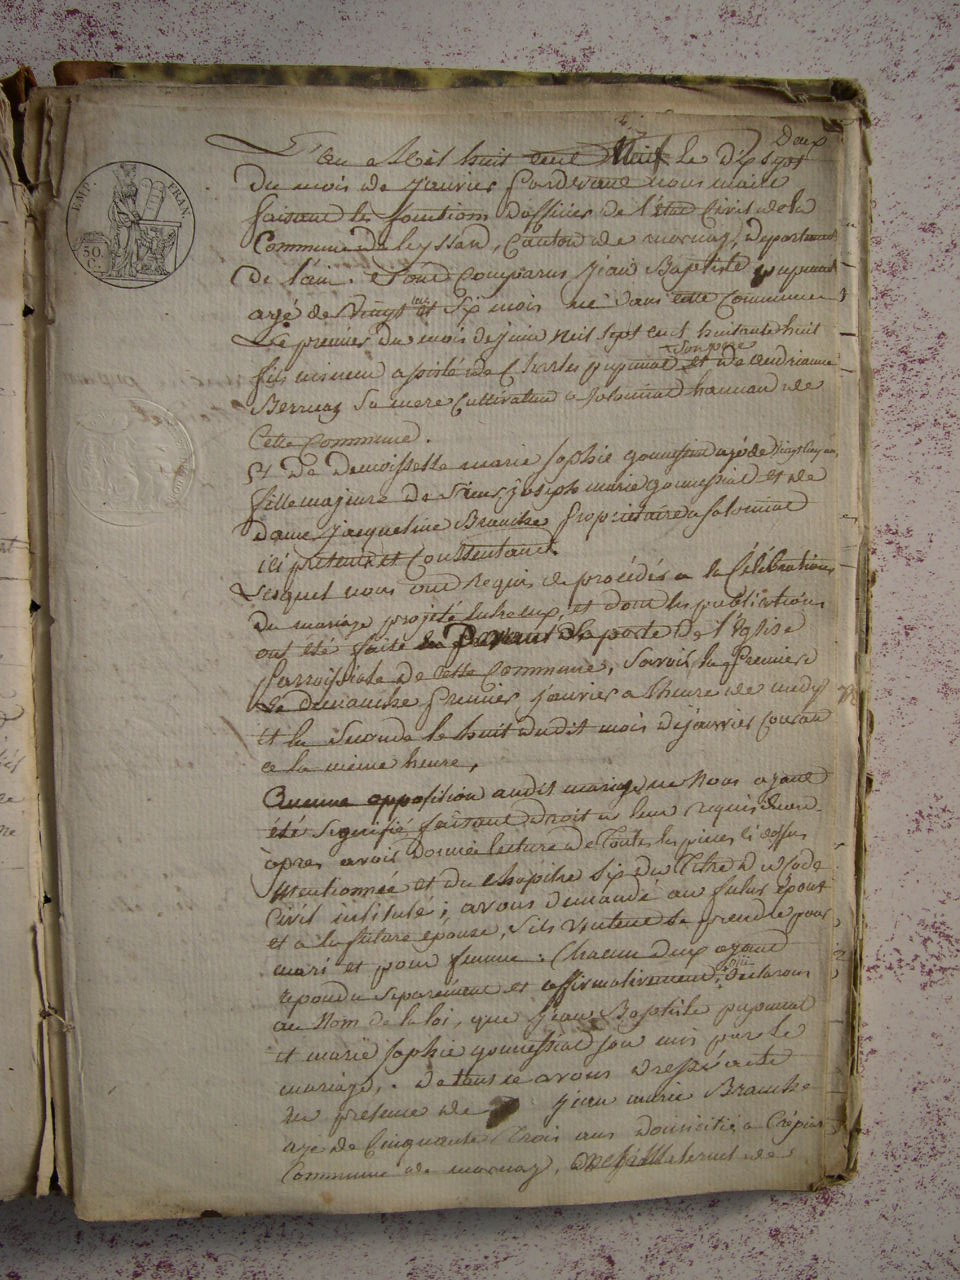 Deux
L'an mil huit cent Neuf le dix sept
du mois de janvier pardevant nous maire
faisant les fonctions d'officier de l'état Civil de la
Commune de Leyssard, Canton de mornay, departement
de l'ain. Sont Comparus jean Baptiste pupunat
agé de Vingt ans et six mois né dans cette Commune
Le premier du mois de juin mil sept cent huitante huit
fils mineur assisté de Charles pupunat son pere et de andrianne
Berruaz sa mere Cultivateur a solomiat hameau de
Cette Commune.
Et de demoisselle marie sophie gonnessiat agé de vingt cinq ans,
fille majeure de sieur joseph marie gonnessiat et de
dame jacqueline Branche proprietaire a solomiat
ici présent et Conssentant.
Lesquel nous ont Requis de procéder a la Célébrations
du mariage projeté entre eux, et dont les publications
ont été faite devant la porte de l'Eglise
parroissiale de cette Commune, savoir la premiere
le dimanche premier janvier a l'heure de midy
et la seconde le huit dudit mois de janvier Courant
a la même heure,
Aucune opposition audit mariage ne Nous ayant
été signifié faisant droit a leur requisition
après avoir donnée lecture de Toutes les pieces ci dessus
mentionnée et du chapitre six du Titre du Code
Civil intitulé; avons demandé au futur époux
et a la future épouze, s'ils veulent se prendre pour
mari et pour femme: Chacun deux ayant
repondu séparément et affirmativement, declarons
au Nom de la loi, que jean Baptiste pupunat
et marie sophie gonnessiat son unis par le
mariage, de tous ce avons dressé acte
en presence de jean marie Branche
agé de Cinquante Trois ans domicilié a Crépiat
Commune de mornay, oncle maternel de
EMP. FRAN.
50.
C.